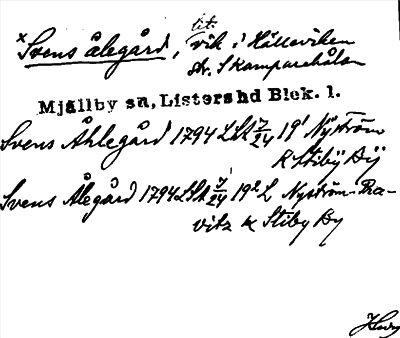 lit.
x Svens ålegård, vik i Hälleviken
str. Skamparehålan
Mjällby sn, Listers hd Blek. l.
Svens Åhlegård 1794 LSA 7/24 19¹ Nyström
K Stiby By
Svens Ålegård 1794 LSA 7/24 19² L Nyström-Pra-
vitz K Stiby By